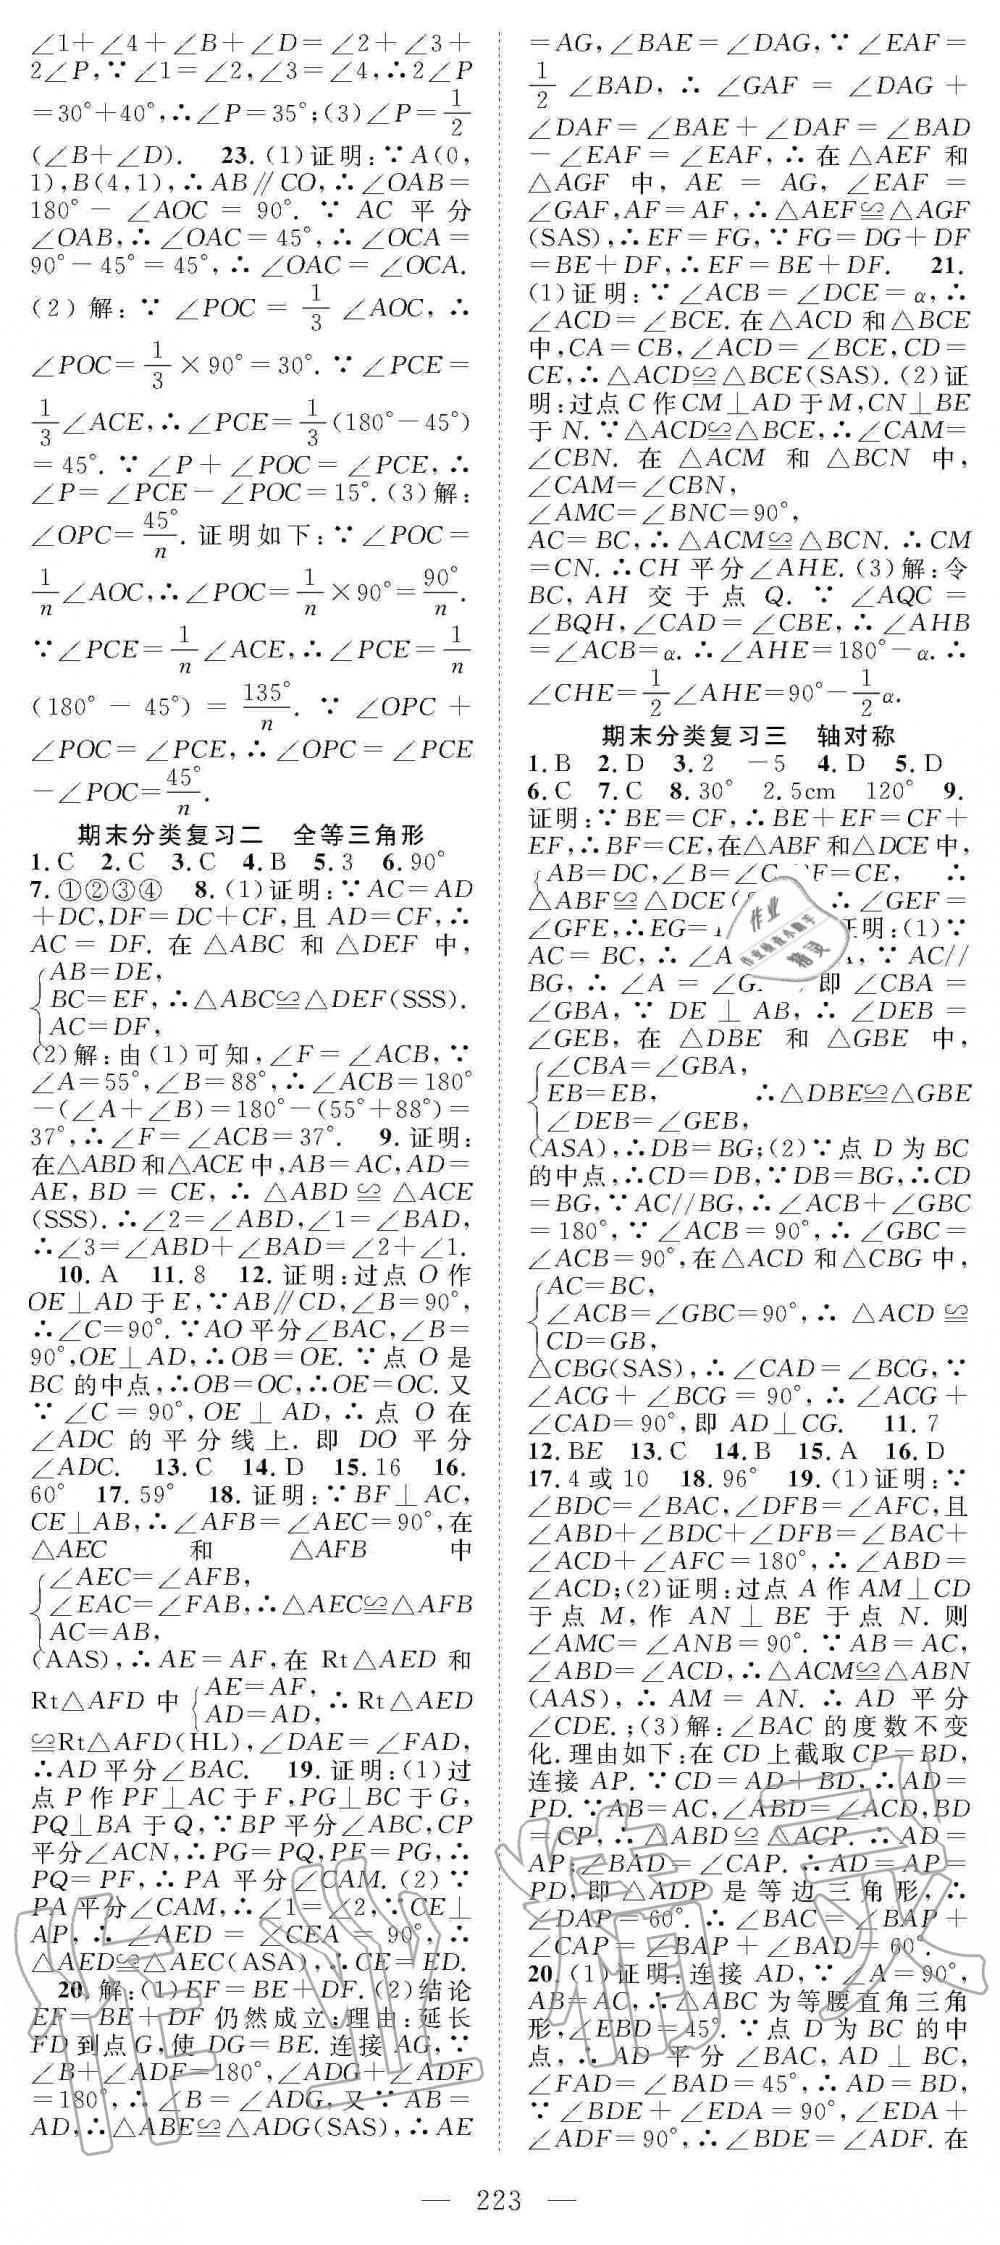 ∠1+∠4+∠B+∠D=∠2+∠3+
2∠P,∵∠1=∠2,∠3=∠4,∴2∠P
=30°+40°,∴∠P=35°;(3)∠P=1/2
(∠B+∠D). 23.(1)证明:∵A(0,
1),B(4,1),∴AB∥CO,∴∠OAB=
180°-∠AOC=90°.∵AC平分
∠OAB,∴∠OAC=45°,∴∠OCA=
90°-45°=45°,∴∠OAC=∠OCA.
(2)解:∵∠POC=1/3∠AOC,∴
∠POC=1/3×90°=30°.∵∠PCE=
1/3∠ACE,∴∠PCE=1/3(180°-45°)
=45°.∵∠P+∠POC=∠PCE,∴
∠P=∠PCE-∠POC=15°.(3)解:
∠OPC=45°/n.证明如下:∵∠POC=
1/n∠AOC,∴∠POC=1/n×90°=90°/n.
∵∠PCE=1/n∠ACE,∴∠PCE=1/n
(180°-45°)=135°/n.∵∠OPC+
∠POC=∠PCE,∴∠OPC=∠PCE
-∠POC=45°/n.
期末分类复习二 全等三角形
1.C 2.C 3.C 4.B 5.3 6.90°
7.①②③④ 8.(1)证明:∵AC=AD
+DC,DF=DC+CF,且AD=CF,∴
AC=DF.在△ABC和△DEF中,
AB=DE,
BC=EF,∴△ABC≌△DEF(SSS).
AC=DF,
(2)解:由(1)可知,∠F=∠ACB,∵
∠A=55°,∠B=88°,∴∠ACB=180°
-(∠A+∠B)=180°-(55°+88°)=
37°,∴∠F=∠ACB=37°. 9.证明:
在△ABD和△ACE中,AB=AC,AD=
AE,BD=CE,∴△ABD≌△ACE
(SSS).∴∠2=∠ABD,∠1=∠BAD,
∴∠3=∠ABD+∠BAD=∠2+∠1.
10.A 11.8 12.证明:过点O作
OE⊥AD于E,∵AB∥CD,∠B=90°,
∴∠C=90°.∵AO平分∠BAC,∠B=
90°,OE⊥AD,∴OB=OE.∵点O是
BC的中点,∴OB=OC,∴OE=OC.又
∵∠C=90°,OE⊥AD,∴点O在
∠ADC的平分线上.即DO平分
∠ADC. 13.C 14.D 15.16 16.
60° 17.59° 18.证明:∵BF⊥AC,
CE⊥AB,∴∠AFB=∠AEC=90°,在
△AEC和△AFB中
∠AEC=∠AFB,
∠EAC=∠FAB,∴△AEC≌△AFB
AC=AB,
(AAS),∴AE=AF,在Rt△AED和
Rt△AFD中{AE=AF, AD=AD,∴Rt△AED
≌Rt△AFD(HL),∠DAE=∠FAD,
∴AD平分∠BAC. 19.证明:(1)过
点P作PF⊥AC于F,PG⊥BC于G,
PQ⊥BA于Q,∵BP平分∠ABC,CP
平分∠ACN,∴PG=PQ,PE=PG,∴
PQ=PF,∴PA平分∠CAM.(2)∵
PA平分∠CAM,∴∠1=∠2,∵CE⊥
AP,∴∠AED=∠CEA=90°,∴
△AED≌△AEC(ASA),∴CE=ED.
20.解:(1)EF=BE+DF.(2)结论
EF=BE+DF仍然成立;理由:延长
FD到点G,使DG=BE.连接AG,∵
∠B+∠ADF=180°,∠ADG+∠ADF
=180°,∴∠B=∠ADG,又∵AB=
AD,∴△ABE≌△ADG(SAS),∴AE
=AG,∠BAE=∠DAG,∵∠EAF=
1/2∠BAD,∴∠GAF=∠DAG+
∠DAF=∠BAE+∠DAF=∠BAD
-∠EAF=∠EAF,∴在△AEF和
△AGF中,AE=AG,∠EAF=
∠GAF,AF=AF,∴△AEF≌△AGF
(SAS),∴EF=FG,∵FG=DG+DF
=BE+DF,∴EF=BE+DF. 21.
(1)证明:∵∠ACB=∠DCE=α,∴
∠ACD=∠BCE.在△ACD和△BCE
中,CA=CB,∠ACD=∠BCE,CD=
CE,∴△ACD≌△BCE(SAS).(2)证
明:过点C作CM⊥AD于M,CN⊥BE
于N.∵△ACD≌△BCE,∴∠CAM=
∠CBN.在△ACM和△BCN中,
∠CAM=∠CBN,
∠AMC=∠BNC=90°,
AC=BC,∴△ACM≌△BCN.∴CM
=CN.∴CH平分∠AHE.(3)解:令
BC,AH交于点Q.∵∠AQC=
∠BQH,∠CAD=∠CBE,∴∠AHB
=∠ACB=α.∴∠AHE=180°-α.∴
∠CHE=1/2∠AHE=90°-1/2α.
期末分类复习三 轴对称
1.B 2.D 3.2 -5 4.D 5.D
6.C 7.C 8.30° 2.5cm 120° 9.
证明:∵BE=CF,∴BE+EF=CF+
EF,∴BF=CE,在△ABF和△DCE中,
AB=DC,∠B=∠C F=CE, ∴
△ABF≌△DCE( ∴∠GEF=
∠GFE,∴EG= 证明:(1)∵
AC=BC,∴∠A ,∵AC//
BG,∴∠A=∠G 即∠CBA=
∠GBA,∵DE⊥AB,∴∠DEB=
∠GEB,在△DBE和△GBE中,
∠CBA=∠GBA,
EB=EB, ∴△DBE≌△GBE
∠DEB=∠GEB,
(ASA),∴DB=BG;(2)∵点D为BC
的中点,∴CD=DB,∵DB=BG,∴CD
=BG,∵AC//BG,∴∠ACB+∠GBC
=180°,∵∠ACB=90°,∴∠GBC=
∠ACB=90°,在△ACD和△CBG中,
AC=BC,
∠ACB=∠GBC=90°,∴△ACD≌
CD=GB,
△CBG(SAS),∴∠CAD=∠BCG,∵
∠ACG+∠BCG=90°,∴∠ACG+
∠CAD=90°,即AD⊥CG. 11.7
12.BE 13.C 14.B 15.A 16.D
17.4或10 18.96° 19.(1)证明:∵
∠BDC=∠BAC,∠DFB=∠AFC,且
∠ABD+∠BDC+∠DFB=∠BAC+
∠ACD+∠AFC=180°,∴∠ABD=
∠ACD;(2)证明:过点A作AM⊥CD
于点M,作AN⊥BE于点N.则
∠AMC=∠ANB=90°.∵AB=AC,
∠ABD=∠ACD,∴△ACM≌△ABN
(AAS),∴AM=AN.∴AD平分
∠CDE.;(3)解:∠BAC的度数不变
化.理由如下:在CD上截取CP=BD,
连接AP.∵CD=AD+BD,∴AD=
PD.∵AB=AC,∠ABD=∠ACD,BD
=CP,∴△ABD≌△ACP.∴AD=
AP;∠BAD=∠CAP.∴AD=AP=
PD,即△ADP是等边三角形,∴
∠DAP=60°.∴∠BAC=∠BAP+
∠CAP=∠BAP+∠BAD=60°.
20.(1)证明:连接AD,∵∠A=90°,
AB=AC,∴△ABC为等腰直角三角
形,∠EBD=45°.∵点D为BC的中
点,∴AD平分∠BAC,AD⊥BC,
∠FAD=∠BAD=45°,∴AD=BD,
∵∠BDE+∠EDA=90°,∠EDA+
∠ADF=90°,∴∠BDE=∠ADF.在
— 223 —
作业精灵